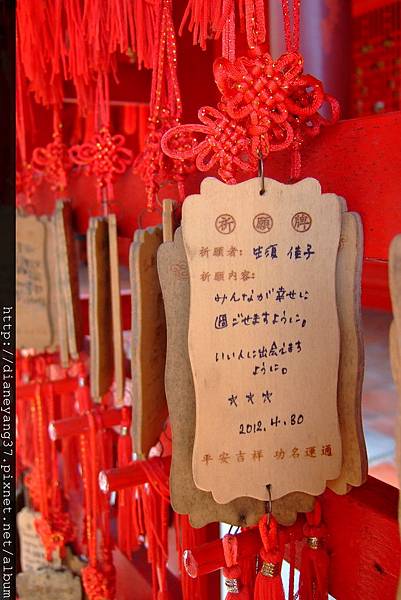 祈願牌
祈願者: 生須 佳子
祈願内容:
みんなが幸せに
過ごせますように。
いい人に出会えます
ように。
2012.4.30
平安吉祥 功名運通
http://dianeyang37.pixnet.net/album